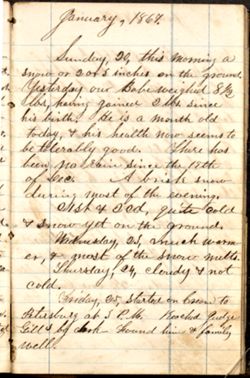 January, 1867.
Sunday, 20, this morning a
snow on 2 or 3 inches on the ground
Yesterday our Babe weighed 8 1/2
lbs, having gained 2 lbs. since
his birth. He is a month old
today, & his health now seems to
be tolerably good. There has
been no rain since the 18th
of Dec. A brisk snow
during most of the evening.
21st & 22d, quite cold
& snow yet on the ground.
Wednesday, 23, much warm
er, & most of the snow melts.
Thursday, 24, cloudy & not
cold.
Friday, 25, started on
Petersburg at 3 P.M. Reached Judge
Gill's by dark. Found him & family
well.